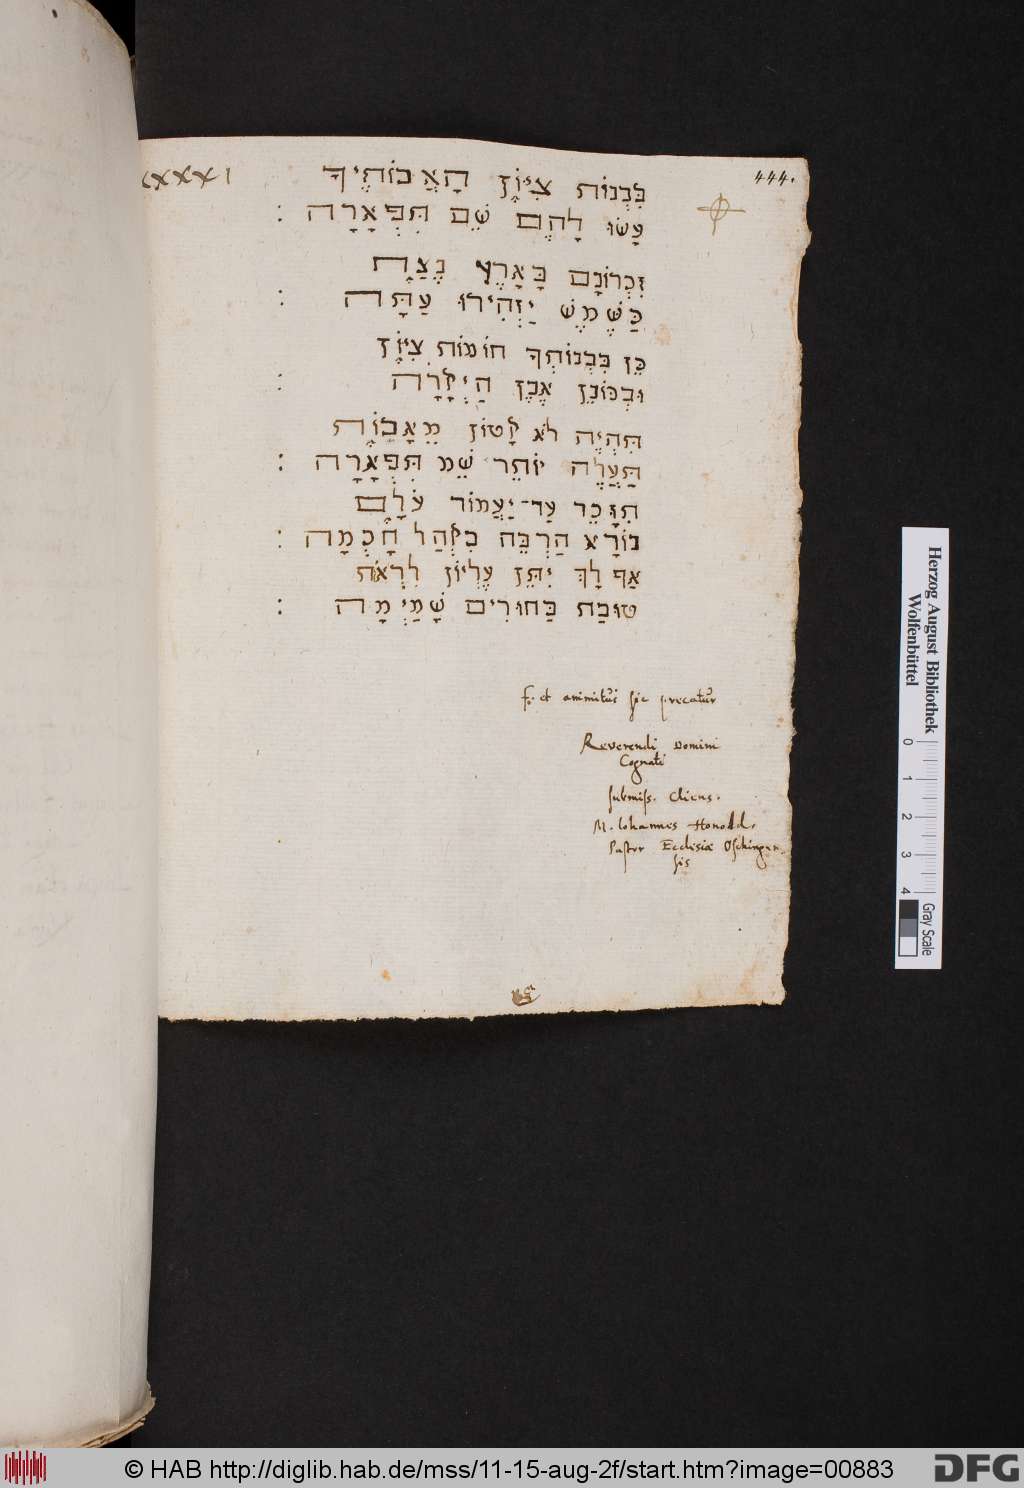 444.
בִּבְנוֹת צִיּוֹן הָאֲבוֹתֶיךָ
עָשׂוּ לָהֶם שֵׁם תִּפְאָרָה :
זִכְרוֹנָם בָּאָרֶץ נֶצַח
כַּשֶּׁמֶשׁ יַזְהִירוּ עַתָּה :
כֵּן בִּבְנוֹתְךָ חוֹמוֹת צִיּוֹן
וּבְכוֹנֵן אֶבֶן הַיְקָרָה :
תִּהְיֶה לֹא קָטוֹן מֵאָבוֹת
תַּעֲלֶה יוֹתֵר שֵׁמ תִּפְאָרָה :
תִּזָּכֵר עַד־יַעֲמוֹד עֹלָם
נוֹרָא הַרְבֵּה בִקְהַל חָכְמָה :
אַף לָךְ יִתֵּן עֶלְיוֹן לִרְאֹת
טוּבַת בַּחוּרִים שָׁמַיְמָה :
et animitus sic precatur
Reverendi Domini
Cognati
submiss. Cliens.
M. Iohannes Honold.
Pastor Ecclesiæ Oschingen
sis
Herzog August Bibliothek
Wolfenbüttel
0 1 2 3 4
Gray Scale
© HAB http://diglib.hab.de/mss/11-15-aug-2f/start.htm?image=00883
DFG